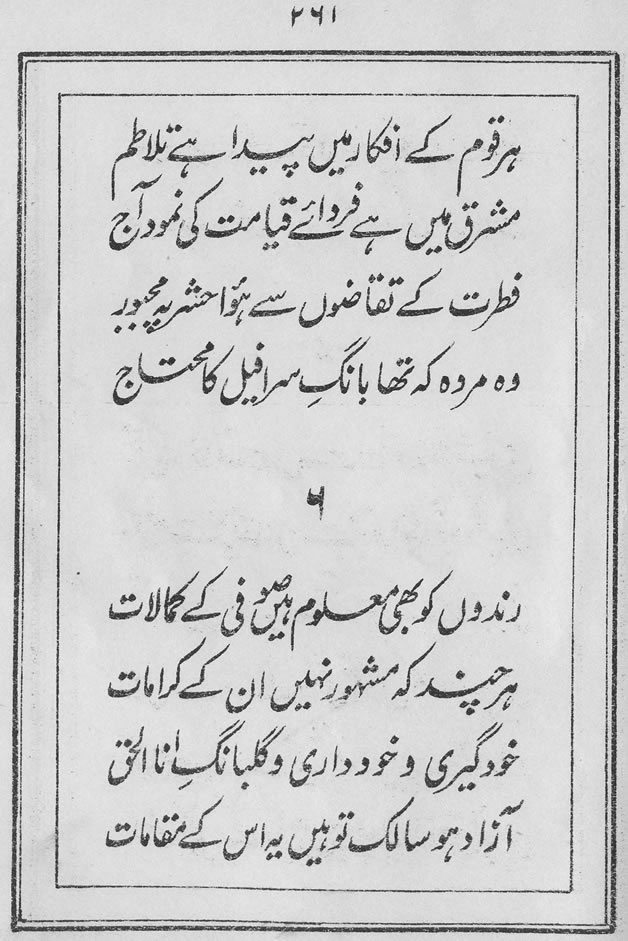 ۲۶۱
ہر قوم کے افکار میں پیدا ہے تلاطم
مشرق میں ہے فردائے قیامت کی نمود آج
فطرت کے تقاضوں سے ہؤا حشر پہ مجبور
وہ مردہ کہ تھا بانگِ سرافیل کا محتاج
۶
رندوں کو بھی معلوم ہیں صوفی کے کمالات
ہر چند کہ مشہور نہیں ان کے کرامات
خود گیری و خودداری و گلبانگِ انا الحق
آزاد ہو سالک تو ہیں یہ اس کے مقامات